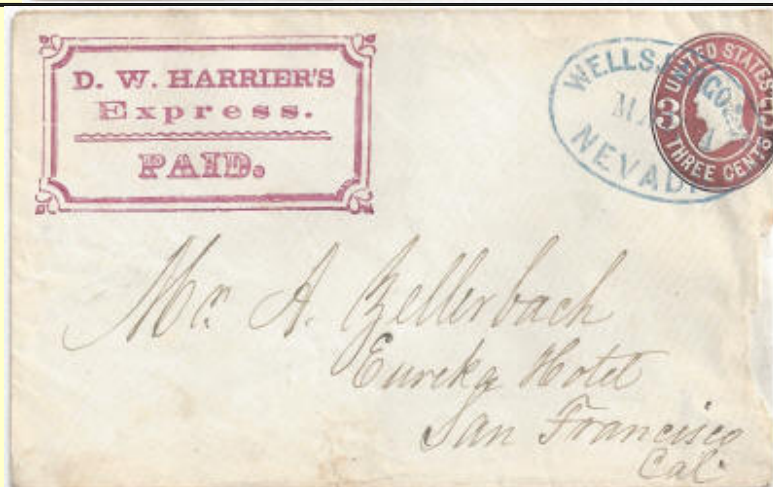 D. W. HARRIER'S
Express.
PAID.
WELLS,
NEVAD
UNITED STATES
3
THREE CENTS
Mr. A. Zellerbach
Eureka Hotel
San Francisco
Cal